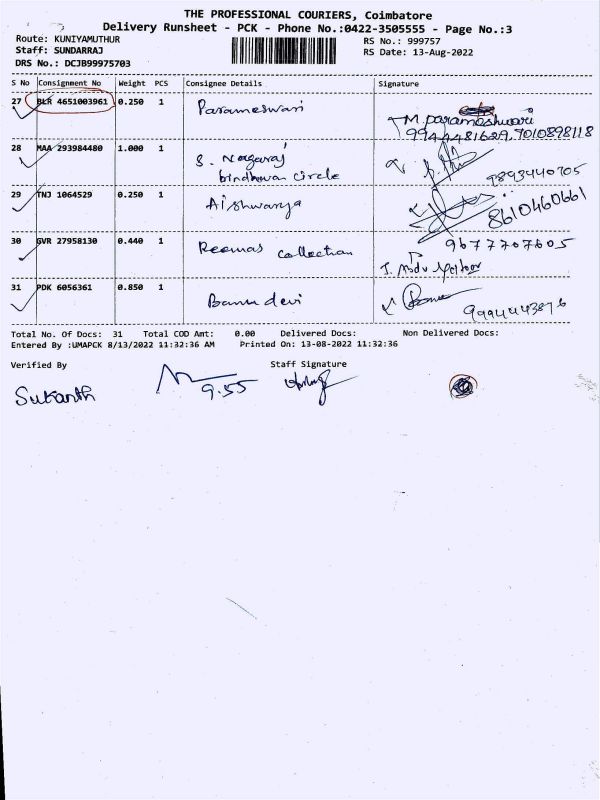 THE PROFESSIONAL COURIERS, Coimbatore
Delivery Runsheet - PCK - Phone No.:0422-3505555 - Page No.:3
Route: KUNIYAMUTHUR RS No.: 999757
Staff: SUNDARRAJ RS Date: 13-Aug-2022
DRS No.: DCJB99975703
S No Consignment No Weight PCS Consignee Details Signature
27 BLR 4651003961 0.250 1 Parameswari M. parameshwari
7010898118
28 MAA 293984480 1.000 1 S. Nagaraj
brindhavan circle 9893440705
29 TNJ 1064529 0.250 1 Aishwarya 8610460661
30 GVR 27958130 0.440 1 Reemas collection 9677707605
31 PDK 6056361 0.850 1 Banu devi
Total No. Of Docs: 31 Total COD Amt: 0.00 Delivered Docs: Non Delivered Docs:
Entered By :UMAPCK 8/13/2022 11:32:36 AM Printed On: 13-08-2022 11:32:36
Verified By Staff Signature
Sukanth 9.55